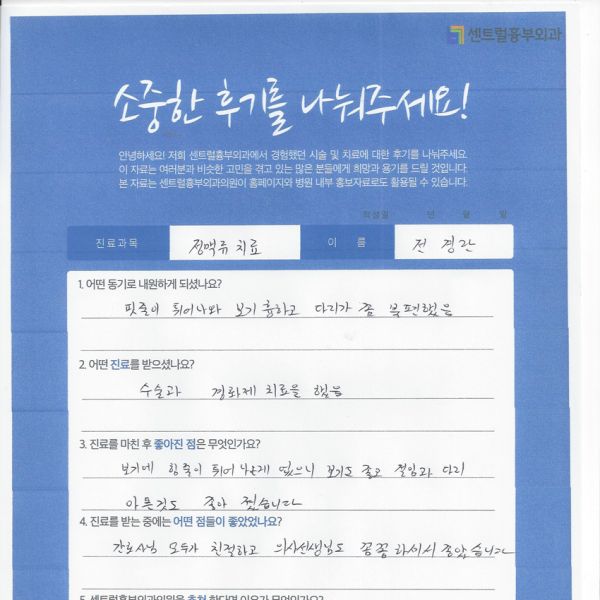 센트럴흉부외과
소중한 후기를 나눠주세요!
안녕하세요! 저희 센트럴흉부외과에서 경험했던 시술 및 치료에 대한 후기를 나눠주세요
이 자료는 여러분과 비슷한 고민을 겪고 있는 많은 분들에게 희망과 용기를 드릴 것입니다.
본 자료는 센트럴흉부외과의원이 홈페이지와 병원 내부 홍보자료로도 활용될 수 있습니다.
작성일 년 월 일
진료과목 정맥류 치료 이 름 전경란
1. 어떤 동기로 내원하게 되셨나요?
핏줄이 튀어나와 보기 흉하고 다리가 좀 불편했음
2. 어떤 진료를 받으셨나요?
수술과 경화제 치료을 했음
3. 진료를 마친 후 좋아진 점은 무엇인가요?
보기에 힘줄이 튀어나온게 없으니 보기도 좋고 절임과 다리
아픈것도 좋아 졌습니다
4. 진료를 받는 중에는 어떤 점들이 좋았었나요?
간호사님 모두가 친절하고 의사선생님도 꼼꼼하셔서 좋았습니다
5. 센트럴흉부외과의원을 추천 한다면 이유가 무엇인가요?